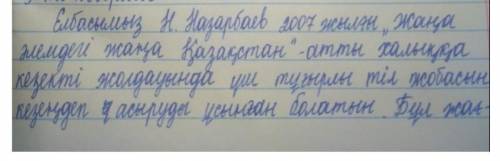 Елбасымыз Н. Назарбаев 2007 жылғы „Жаңа
әлемдегі жаңа Қазақстан“ - атты халыққа
кезекті жолдауында үш тұғырлы тіл жобасын
кезеңдеп асыруды ұсынған болатын. Бұл жал-